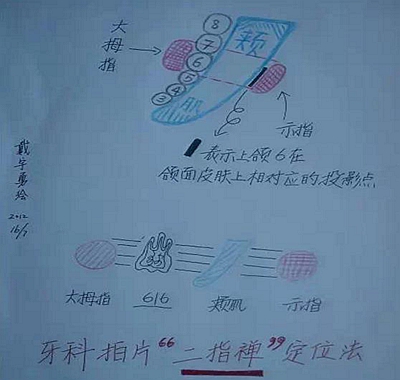 大拇指
8
7
6
5
4
3
颊
肌
示指
表示上颌6在
颌面皮肤上相对应的投影点
绘
2012
大拇指 616 颊肌 示指
牙科拍片“二指禅”定位法